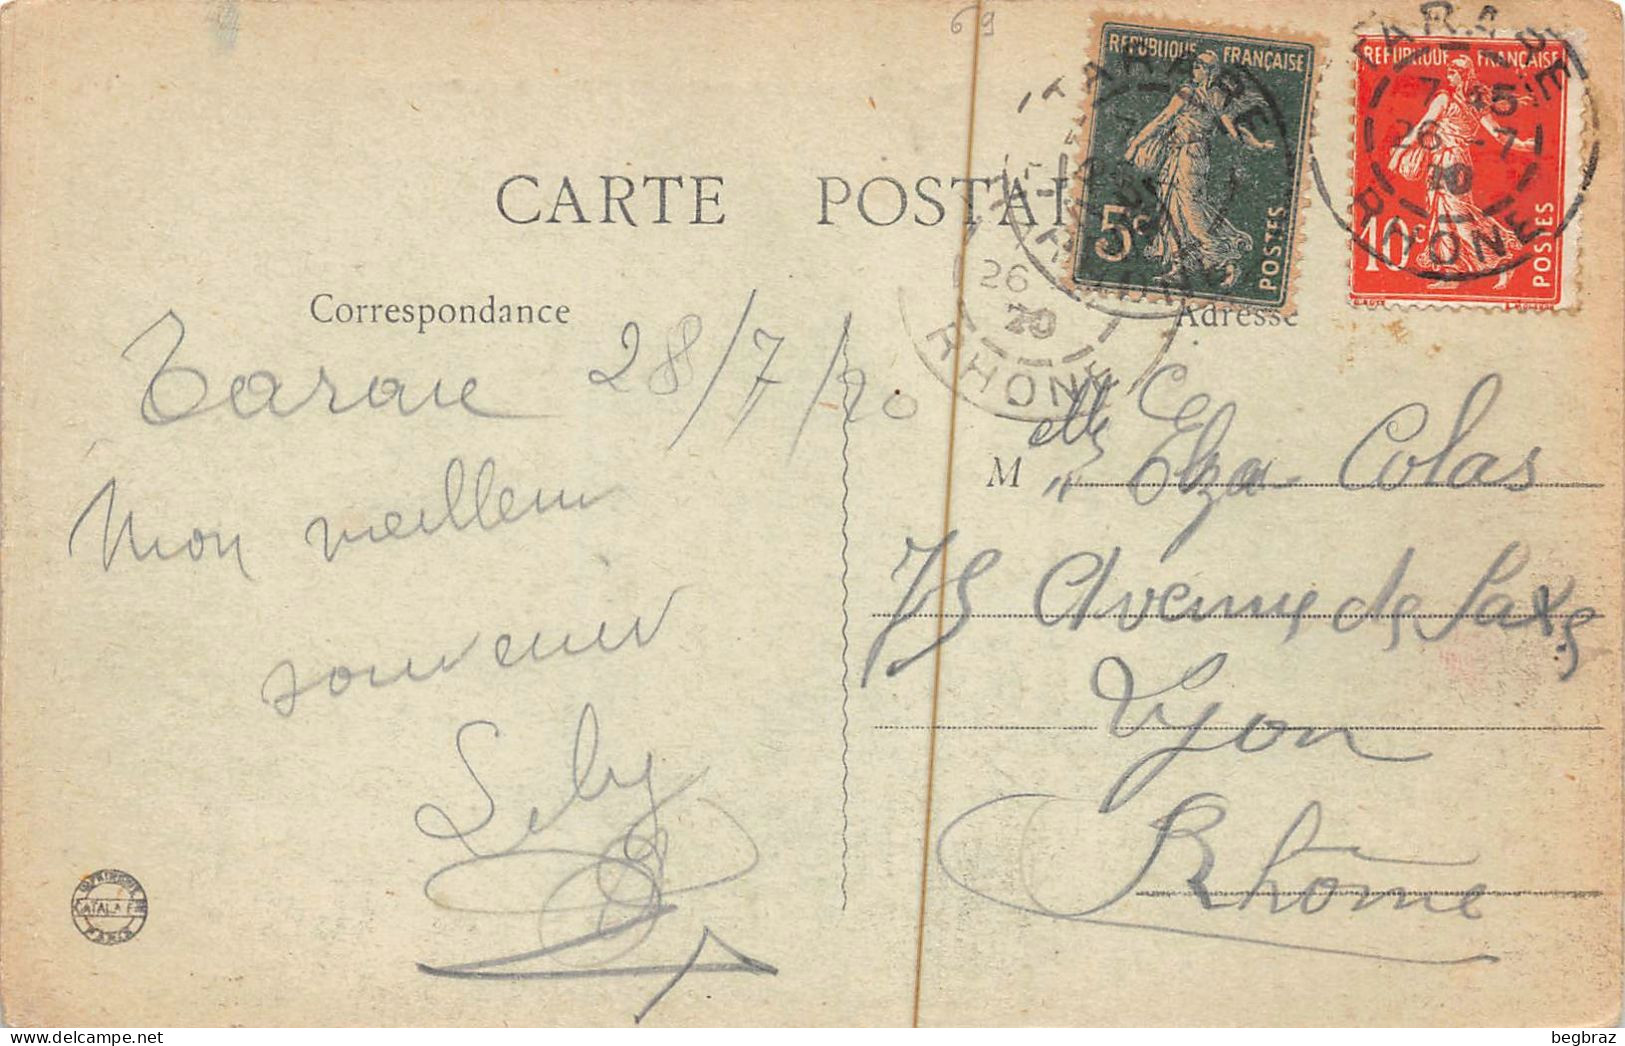 69
REPUBLIQUE FRANÇAISE
5c
POSTES
REPUBLIQUE FRANÇAISE
10c
POSTES
TARARE
RHONE
TARARE
7 45
26 -7
RHONE
26
RHONE
CARTE POSTAL
Correspondance
Adresse
Tarare 28/7/20
Mon meilleur
souvenir
Lily
Melle Elza Colas
75 Avenue de Saxe
Lyon
Rhône
IMPRIMERIE
CATALA F
PARIS
begbraz